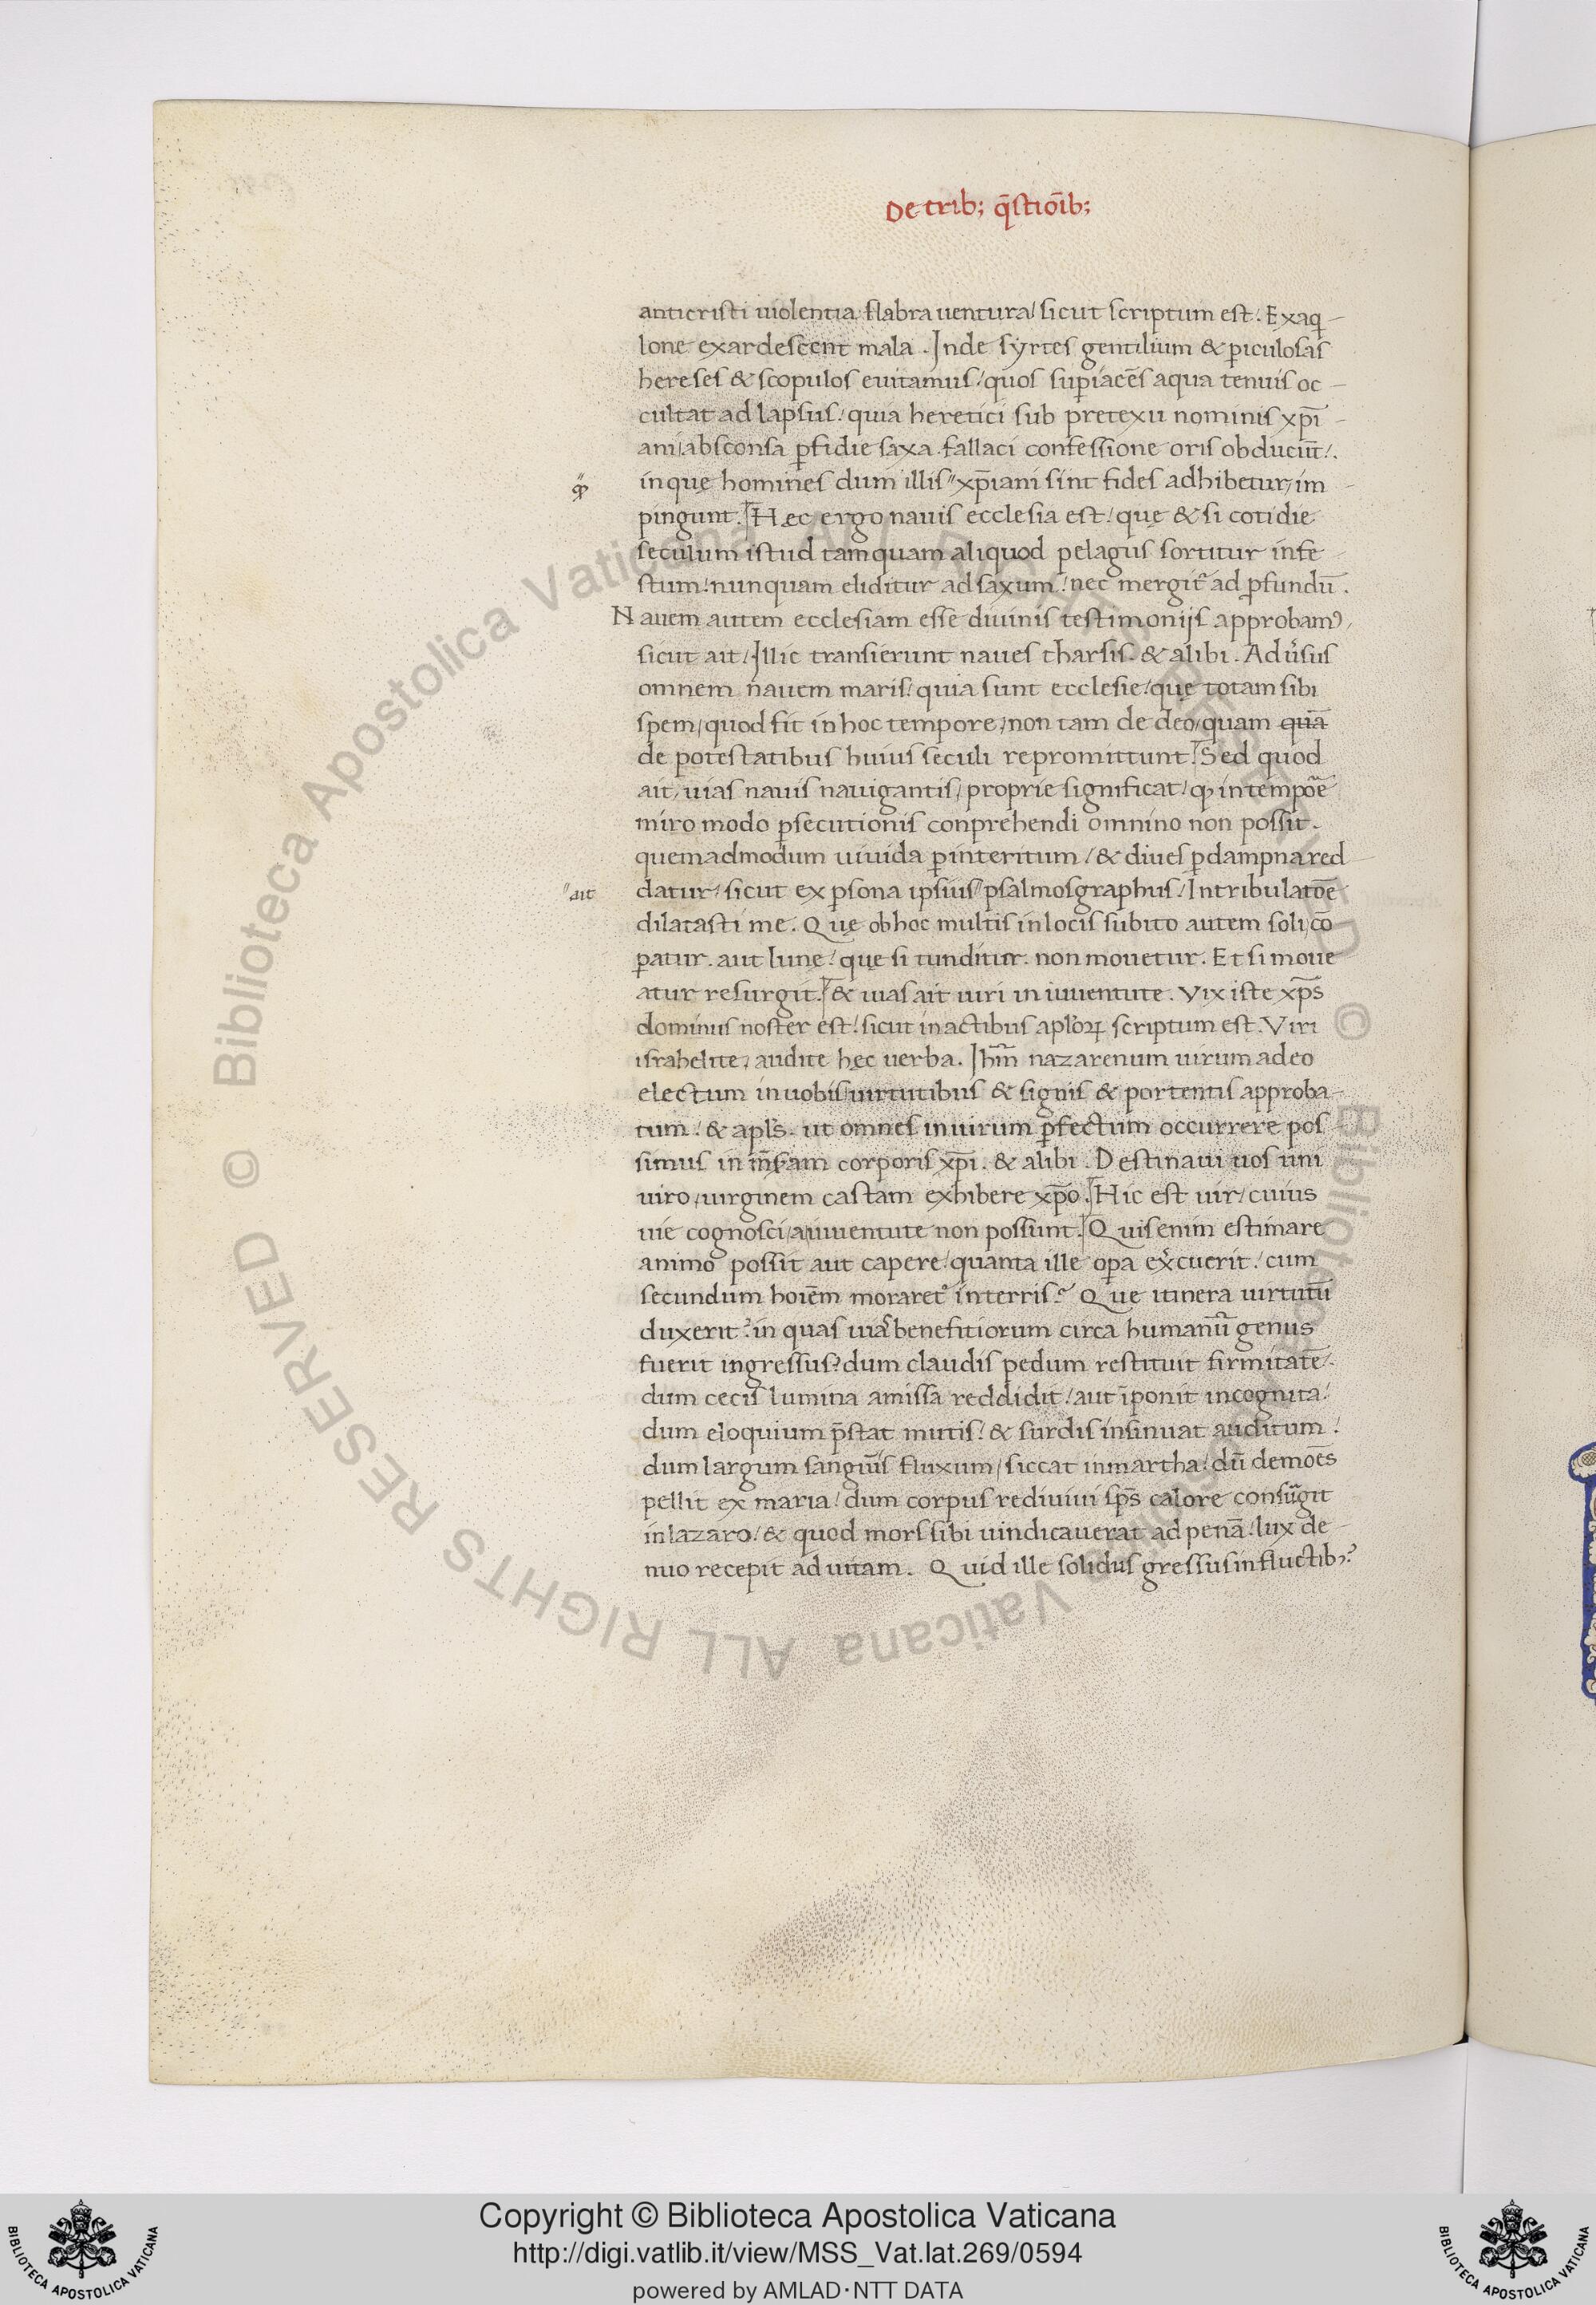 De trib; q̄stiōib;
anticristi uiolentia flabra uentura/ sicut scriptum est. Ex aq̣-
lone exardescent mala. Inde syrtes gentilium & ꝑiculosas
hereses & scopulos euitamus/ quos suꝑiacēs aqua tenuis oc-
cultat ad lapsus/ quia heretici sub pretexu nominis xp̄i-
ani/ absconsa ꝑfidie saxa fallaci confessione oris obducūt/.
in quę homines dum illis" xp̄iani sint fides adhibetur/ im-
"ꝙ
pingunt. Hęc ergo nauis ecclesia est/ quę & si cotidie
seculum istud tamquam aliquod pelagus sortitur infe-
stum/ nunquam eliditur ad saxum/ nec mergit᷑ ad ꝓfundū.
Nauem autem ecclesiam esse diuinis testimonijs approbamꝰ,
sicut ait/ Illic transierunt naues tharsis. & alibi. Aduͥsus
omnem nauem maris/ quia sunt ecclesie/ quę totam sibi
spem/ quod fit in hoc tempore/ non tam de deo/ quam quā
de potestatibus huius seculi repromittunt. Sed quod
ait/ uias nauis nauigantis/ proprie significat/ ꝙ in tempōe
miro modo ꝑsecutionis conprehendi omnino non possit.
quemadmodum uiuida ꝑ interitum/ & diues ꝑ dampna red-
datur/ sicut ex ꝑsona ipsius" psalmosgraphus/ In tribulatōe
"ait
dilatasti me. Quę ob hoc multis in locis subito autem soli/ cō
ꝑatur. aut lunę/ quę si tunditur. non mouetur. Et si moue
atur resurgit. & uias ait uiri in iuuentute. Vix iste xp̄s
dominus noster est/ sicut in actibus apl'oꝝ scriptum est. Viri
israhelite/ audite hęc uerba. Ihm̄ nazarenum uirum a deo
electum in uobis/ uirtutibus & signis & portentis approba-
tum/ & apl's. ut omnes in uirum ꝑfectum occurrere pos
simus in mēsam corporis xp̄i. & alibi. Destinaui uos uni
uiro/ uirginem castam exhibere xp̄o. Hic est uir/ cuius
uie cognosci/ a iuuentute non possunt. Quis enim estimare
animo possit aut capere/ quanta ille oꝑa ex̓cuerit/ cum
secundum hoiēm moraret᷑ in terris? Que itinera uirtutū
duxerit? in quas uias benefitiorum circa humanū genus
fuerit ingressus? dum claudis pedum restituit firmitatē/.
dum cecis lumina amissa reddidit/ aut īponit incognita/
dum eloquium p̄stat mutis/ & surdis insinuat auditum/
dum largum sanguīs fluxum/ siccat in martha/ dū demoēs
pellit ex maria/ dum corpus rediuiui sp̄s calore consuͬgit
in lazaro/ & quod mors sibi uindicauerat ad penā/ lux de-
nuo recepit ad uitam. Quid ille solidus gressus in fluctibꝫ?
Copyright © Biblioteca Apostolica Vaticana
http://digi.vatlib.it/view/MSS_Vat.lat.269/0594
powered by AMLAD·NTT DATA